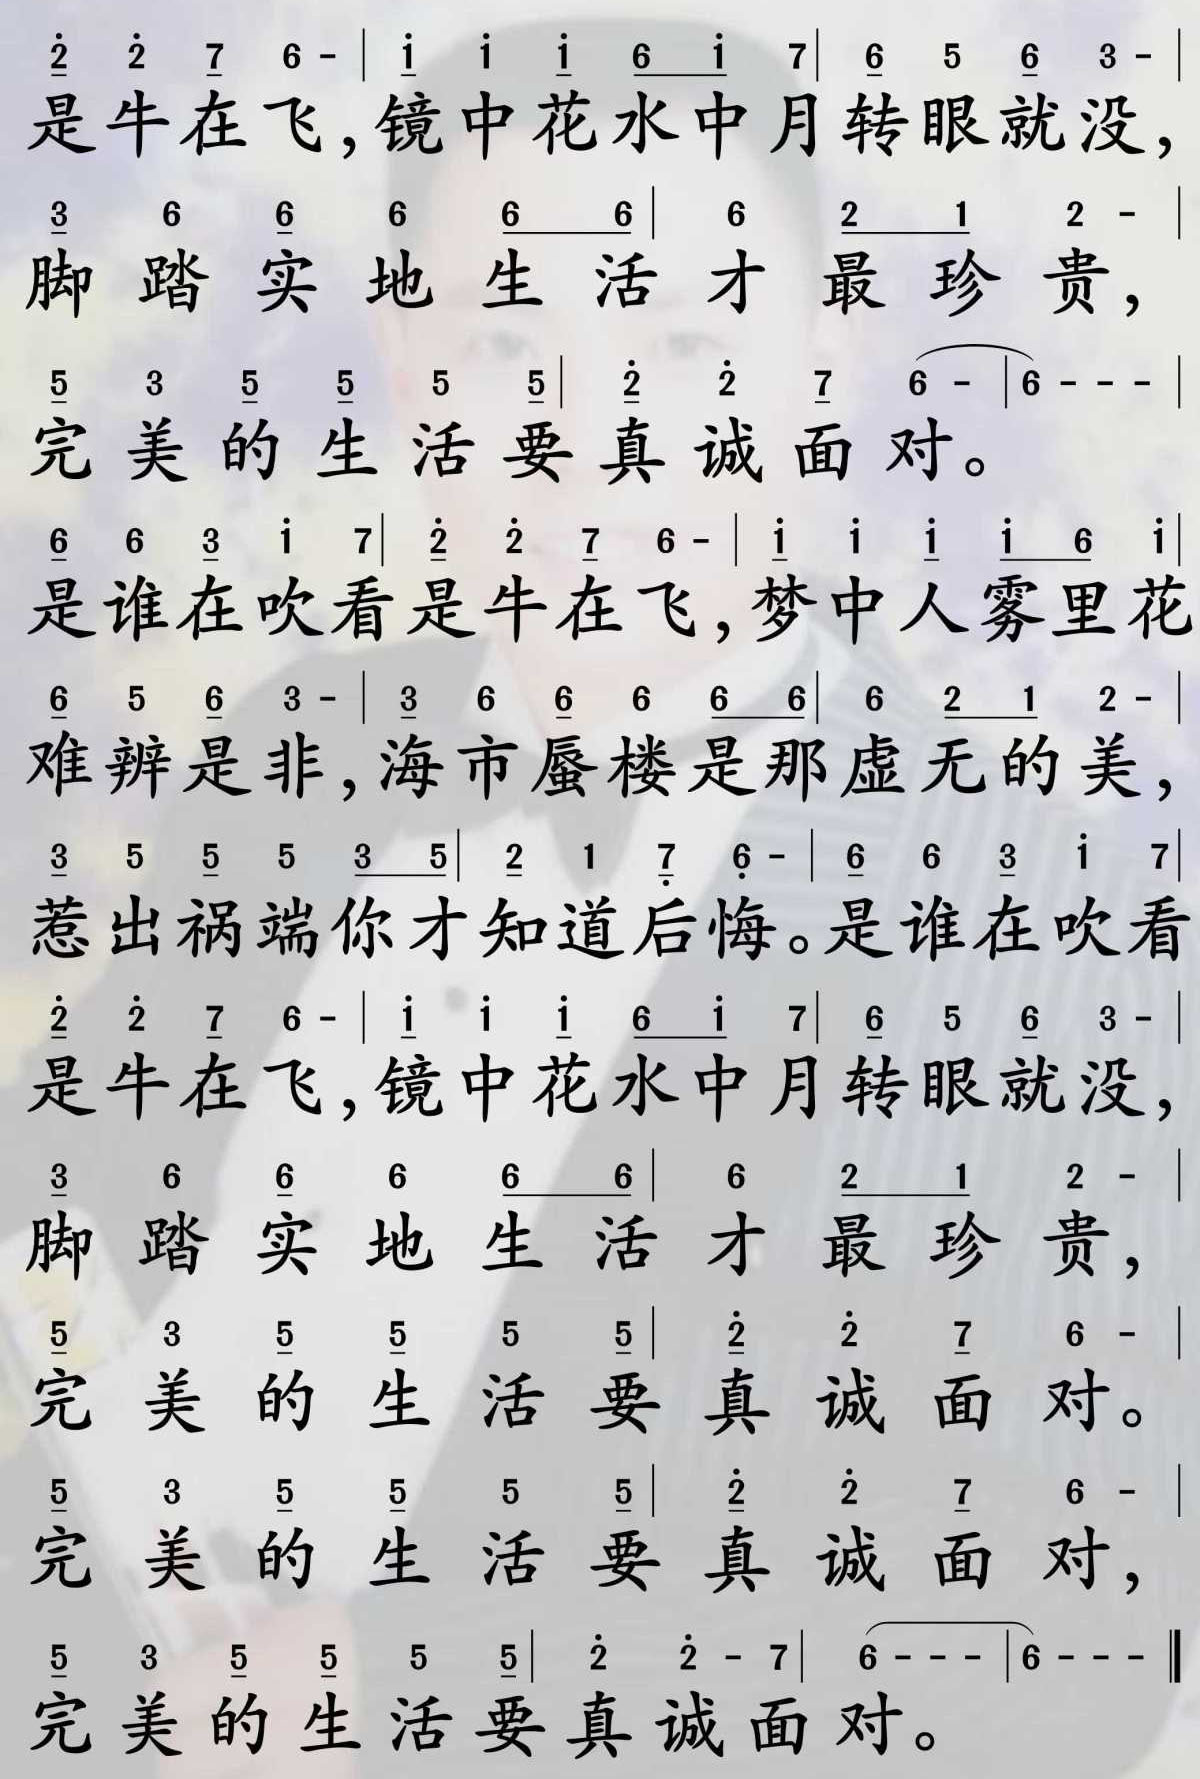 2̇ 2̇ 7 6 - | 1̇ 1̇ 1̇ 6 1̇ 7 | 6 5 6 3 - |
是牛在飞,镜中花水中月转眼就没,
3 6 6 6 6 6 | 6 2 1 2 - |
脚踏实地生活才最珍贵,
5 3 5 5 5 5 | 2̇ 2̇ 7 6 - | 6 - - - |
完美的生活要真诚面对。
6 6 3 1̇ 7 | 2̇ 2̇ 7 6 - | 1̇ 1̇ 1̇ 1̇ 6 1̇ |
是谁在吹看是牛在飞,梦中人雾里花
6 5 6 3 - | 3 6 6 6 6 6 | 6 2 1 2 - |
难辨是非,海市蜃楼是那虚无的美,
3 5 5 5 3 5 | 2 1 7̣ 6̣ - | 6 6 3 1̇ 7 |
惹出祸端你才知道后悔。是谁在吹看
2̇ 2̇ 7 6 - | 1̇ 1̇ 1̇ 6 1̇ 7 | 6 5 6 3 - |
是牛在飞,镜中花水中月转眼就没,
3 6 6 6 6 6 | 6 2 1 2 - |
脚踏实地生活才最珍贵,
5 3 5 5 5 5 | 2̇ 2̇ 7 6 - |
完美的生活要真诚面对。
5 3 5 5 5 5 | 2̇ 2̇ 7 6 - |
完美的生活要真诚面对,
5 3 5 5 5 5 | 2̇ 2̇ - 7 | 6 - - - | 6 - - - ‖
完美的生活要真诚面对。